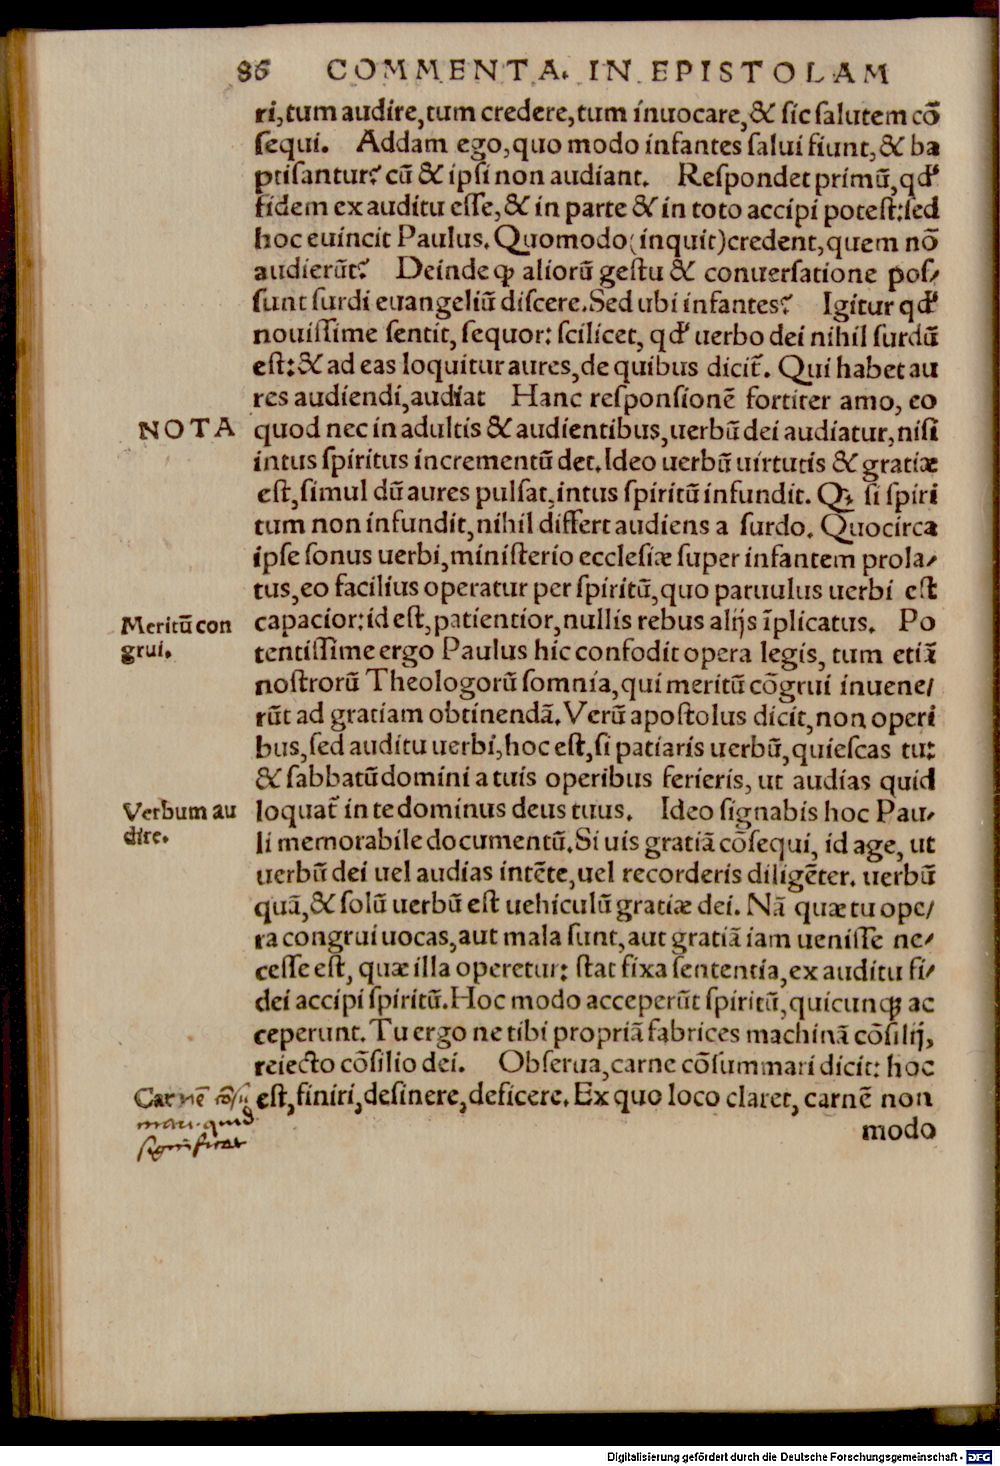 86 COMMENTA. IN EPISTOLAM
ri, tum audire, tum credere, tum inuocare, & sic salutem cō
sequi. Addam ego, quo modo infantes salui fiunt, & ba
ptisantur? cū & ipsi non audiant. Respondet primū, qđ
fidem ex auditu esse, & in parte & in toto accipi potest: sed
hoc euincit Paulus. Quomodo (inquit) credent, quem nō
audierūt? Deinde ꝙ aliorū gestu & conuersatione pos/
sunt surdi euangeliū discere. Sed ubi infantes? Igitur qđ
nouissime sentit, sequor: scilicet, qđ uerbo dei nihil surdū
est: & ad eas loquitur aures, de quibus dicit̄. Qui habet au
res audiendi, audiat Hanc responsionē fortiter amo, eo
NOTA
quod nec in adultis & audientibus, uerbū dei audiatur, nisi
intus spiritus incrementū det. Ideo uerbū uirtutis & gratiæ
est, simul dū aures pulsat, intus spiritū infundit. Qꝫ si spiri
tum non infundit, nihil differt audiens a surdo. Quocirca
ipse sonus uerbi, ministerio ecclesiæ super infantem prola/
tus, eo facilius operatur per spiritū, quo paruulus uerbi est
Meritū con
grui.
capacior: id est, patientior, nullis rebus alijs īplicatus. Po
tentissime ergo Paulus hic confodit opera legis, tum etiā
nostrorū Theologorū somnia, qui meritū cōgrui inuene/
rūt ad gratiam obtinendā. Verū apostolus dicit, non operi
bus, sed auditu uerbi, hoc est, si patiaris uerbū, quiescas tu:
& sabbatū domini a tuis operibus ferieris, ut audias quid
Verbum au
dire.
loquat̄ in te dominus deus tuus. Ideo signabis hoc Pau/
li memorabile documentū. Si uis gratiā cōsequi, id age, ut
uerbū dei uel audias intēte, uel recorderis diligēter. uerbū
quā, & solū uerbū est uehiculū gratiæ dei. Nā quæ tu ope/
ra congrui uocas, aut mala sunt, aut gratiā iam uenisse ne/
cesse est, quæ illa operetur: stat fixa sententia, ex auditu fi/
dei accipi spiritū. Hoc modo acceperūt spiritū, quicunqꝫ ac
ceperunt. Tu ergo ne tibi propriā fabrices machinā cōsilij,
reiecto cōsilio dei. Obserua, carne cōsummari dicit: hoc
Carnē cōsū
mari. quid
significat
est, finiri, desinere, deficere. Ex quo loco claret, carnē non
modo
Digitalisierung gefördert durch die Deutsche Forschungsgemeinschaft - DFG